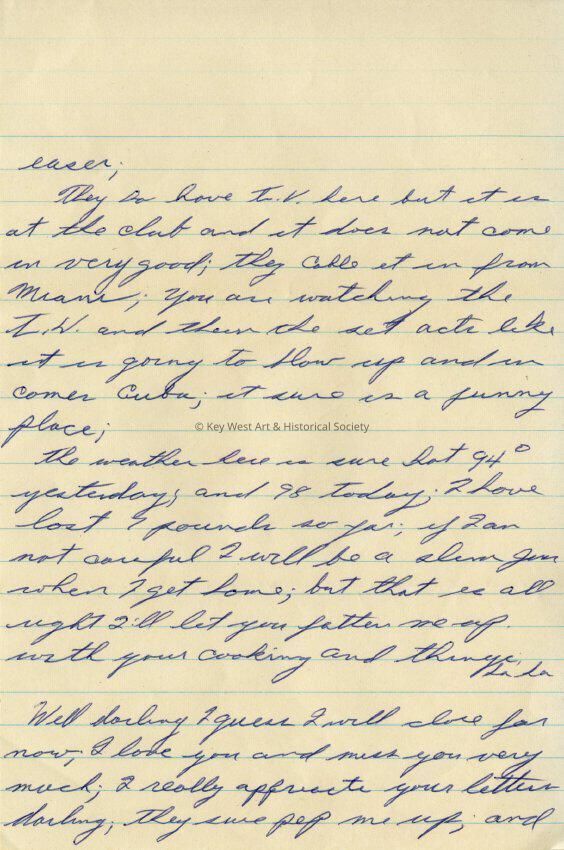 easer;
They do have T.V. here but it is
at the club and it does not come
in very good; they cable it in from
Miami; you are watching the
T.V. and then the set acts like
it is going to blow up and in
comes Cuba; it sure is a funny
place;
© Key West Art & Historical Society
the weather here is sure hot 94°
yesterday; and 98 today; I have
lost 9 pounds so far; if I am
not careful I will be a slim
when I get home; but that is all
right I'll let you fatten me up.
with your cooking and things;
Ha Ha
Well darling I guess I will close for
now; I love you and miss you very
much; I really appreciate your letters
darling; they sure pep me up; and